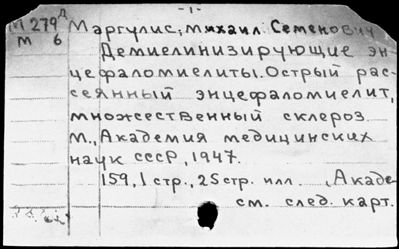 -1-
М279 Л Маргулис, Михаил Семенович
М 6 Демиелинизирующие эн-
цефаломиелиты. Острый рас-
сеянный энцефаломиелит,
множественный склероз.
М., Академия медицинских
наук СССР, 1947.
159, 1 стр., 25 стр. илл. , Акаде-
см. след. карт.